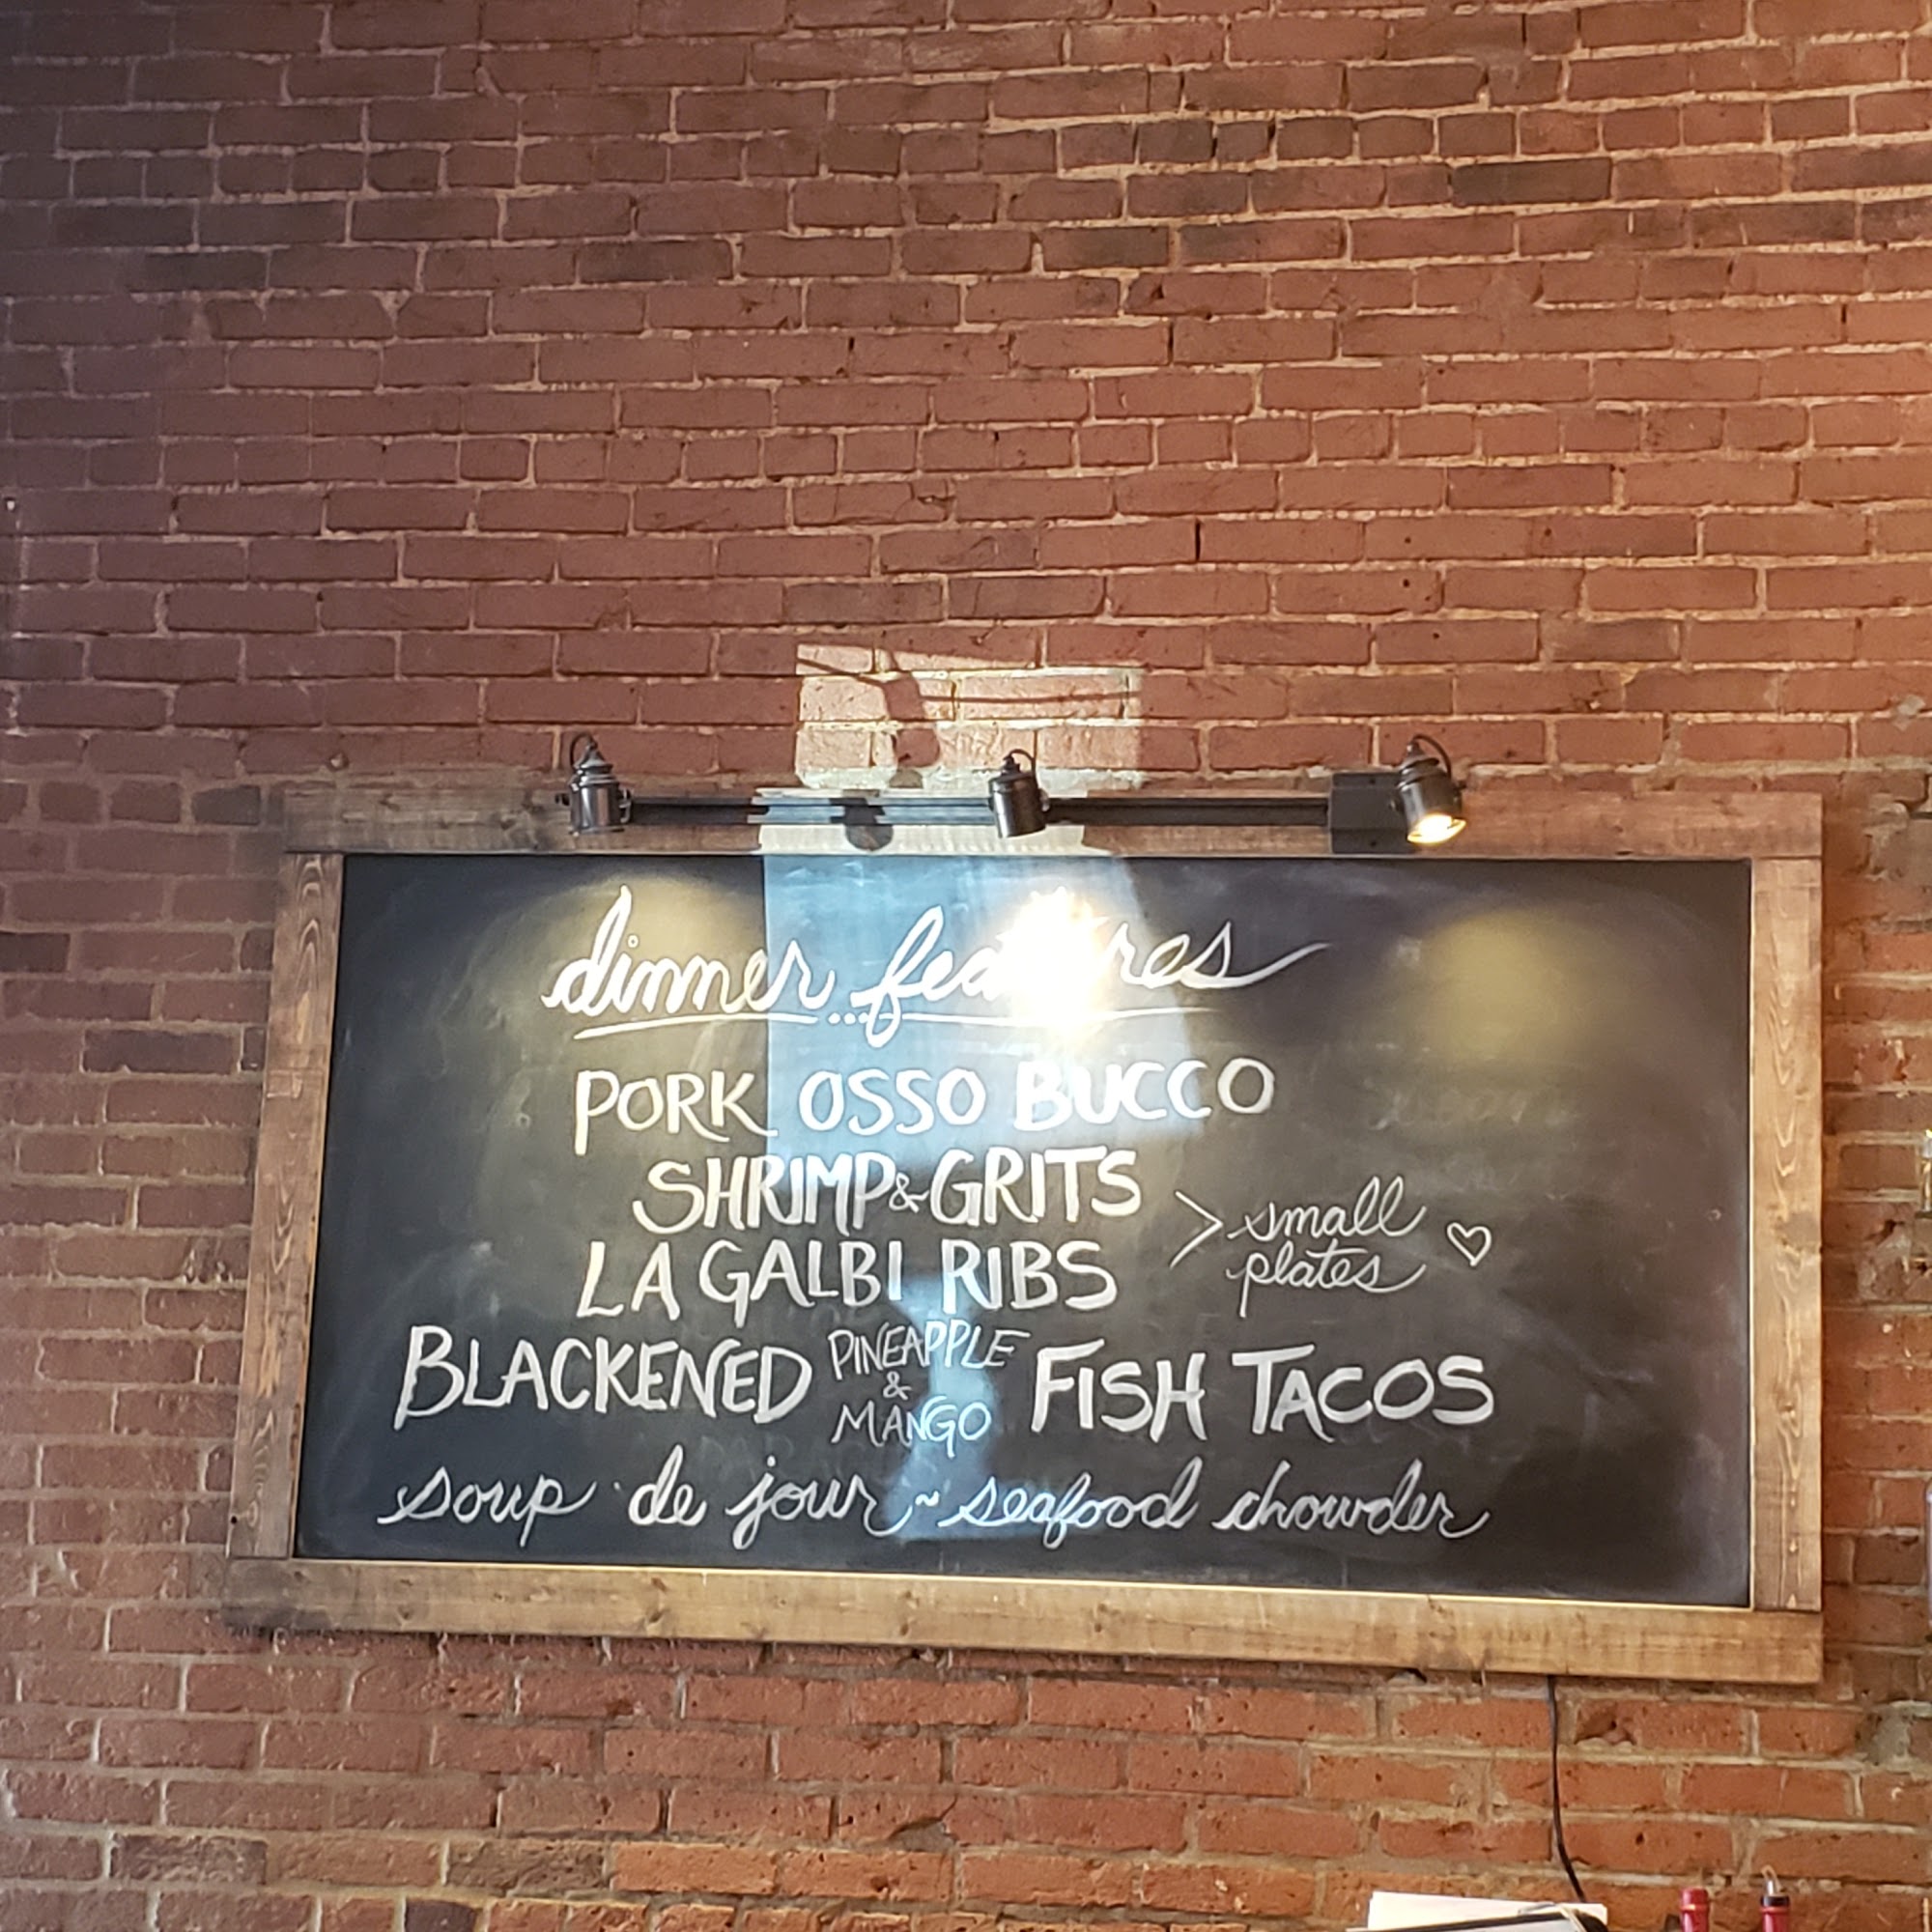 dinner features
PORK OSSO BUCCO
SHRIMP & GRITS
LA GALBI RIBS
> small
plates ♡
BLACKENED PINEAPPLE & MANGO FISH TACOS
soup de jour ~ seafood chowder